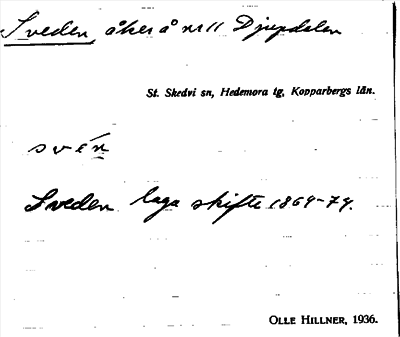 Sveden, åker å nr 11 Djupdalen
St. Skedvi sn, Hedemora tg, Kopparbergs län.
svén
Sveden laga skifte 1869-74.
OLLE HILLNER, 1936.